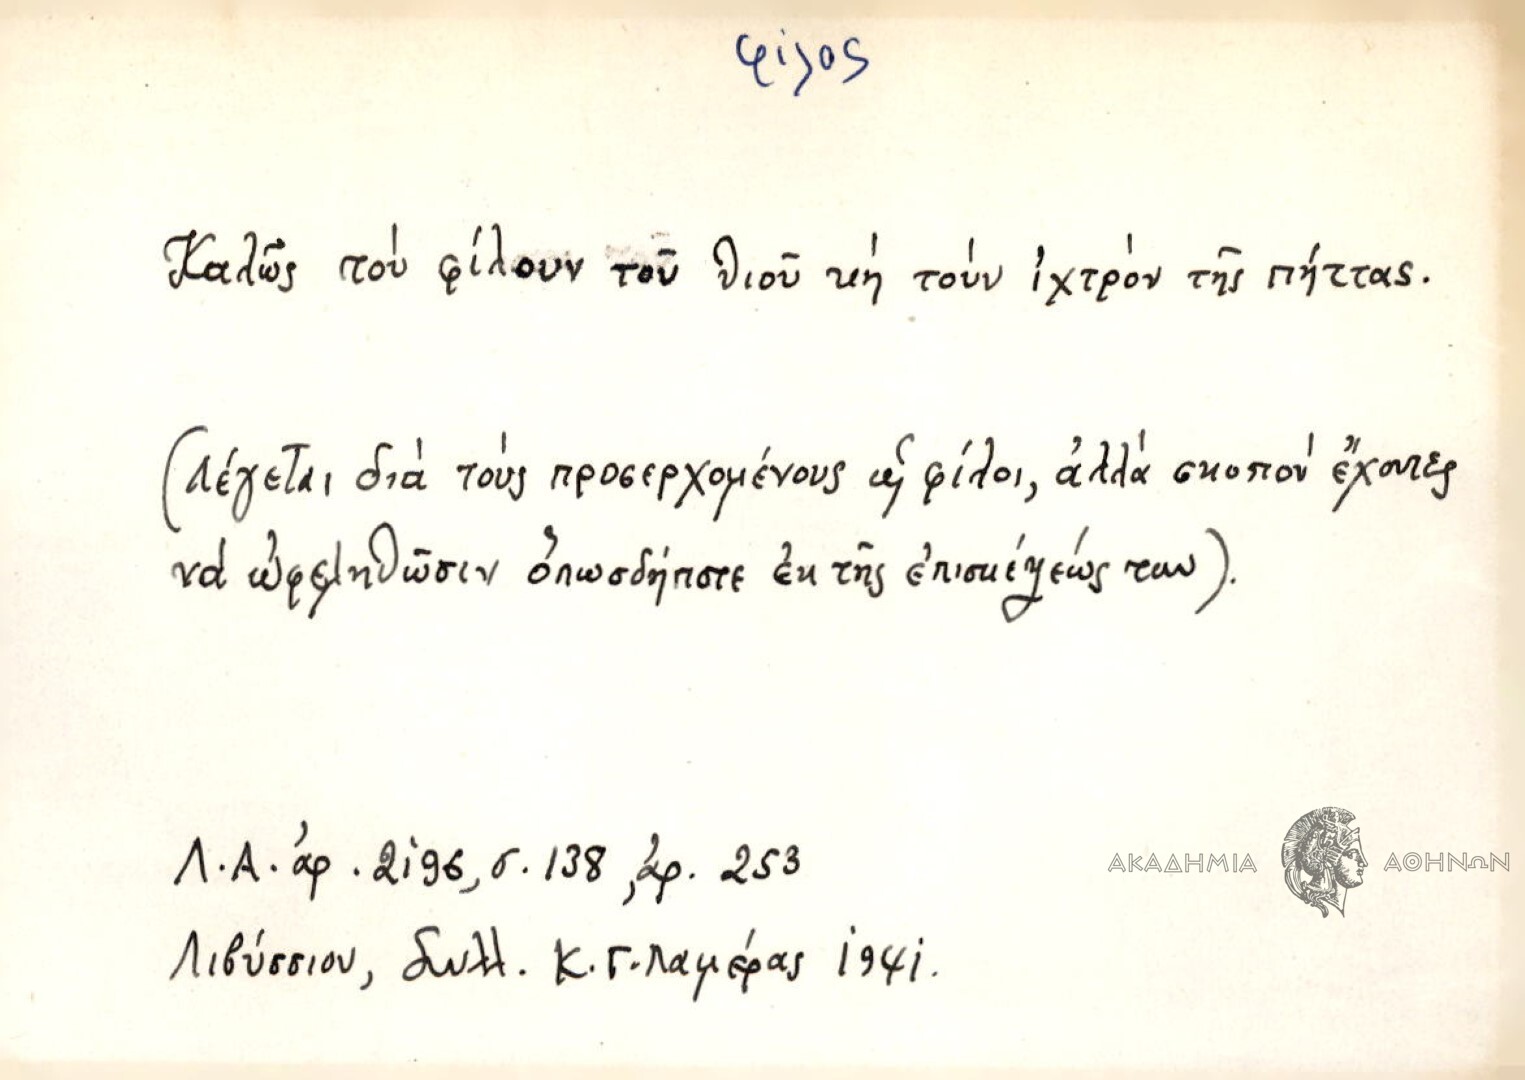 φίλος
Καλῶς τού φίλουν τοῦ θιοῦ κή τούν ἰχτρόν τῆς πήττας.
(Λέγεται διά τούς προσερχομένους ὡς φίλοι, ἀλλά σκοπόν ἔχοντες
νά ὠφεληθῶσιν ὁπωσδήποτε ἐκ τῆς ἐπισκέψεώς των).
Λ.Α. ἀρ. 2196, σ. 138, ἀρ. 253
ΑΚΑΔΗΜΙΑ ΑΘΗΝΩΝ
Λιβύσσιον, Συλλ. Κ. Γ. Λαμέρας 1941.